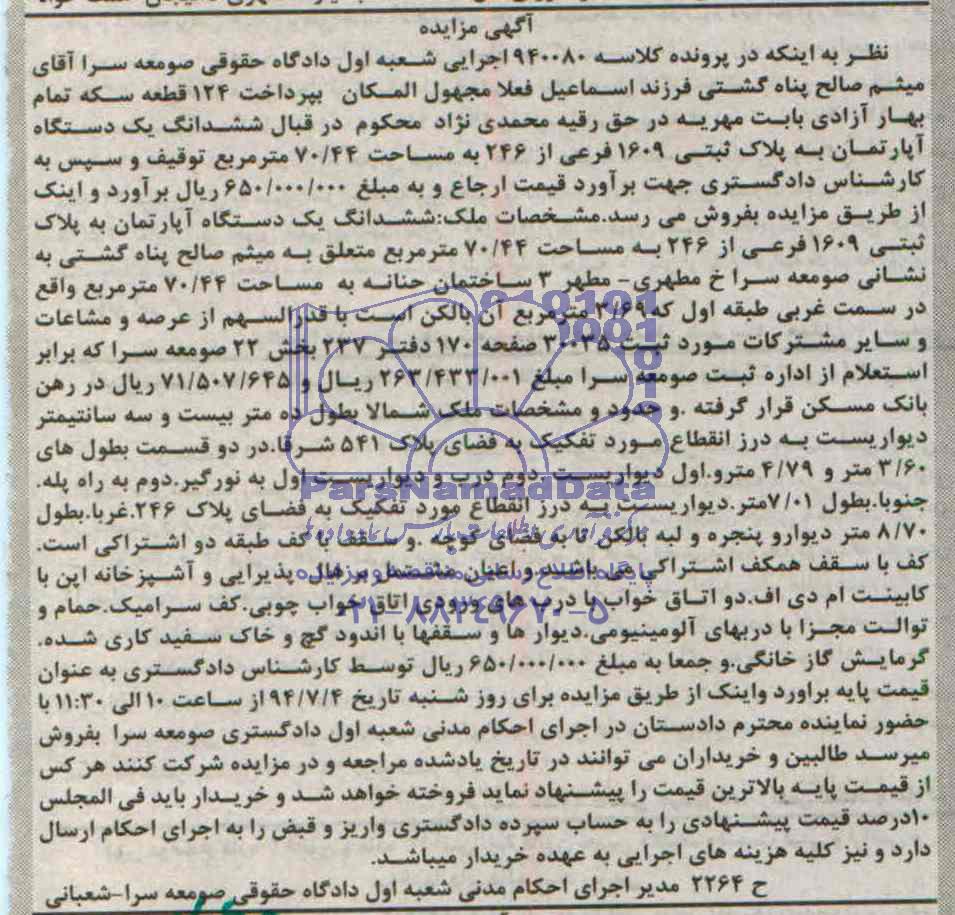 آگهی مزایده
نظر به اینکه در پرونده کلاسه ۹۴۰۰۸۰ اجرایی شعبه اول دادگاه حقوقی صومعه سرا آقای
میثم صالح پناه گشتی فرزند اسماعیل فعلا مجهول المکان بپرداخت ۱۲۴ قطعه سکه تمام
بهار آزادی بابت مهریه در حق رقیه محمدی نژاد محکوم در قبال ششدانگ یک دستگاه
آپارتمان به پلاک ثبتی ۱۶۰۹ فرعی از ۲۴۶ به مساحت ۷۰/۴۴ مترمربع توقیف و سپس به
کارشناس دادگستری جهت برآورد قیمت ارجاع و به مبلغ ۶۵۰/۰۰۰/۰۰۰ ریال برآورد و اینک
از طریق مزایده بفروش می رسد.مشخصات ملک:ششدانگ یک دستگاه آپارتمان به پلاک
ثبتی ۱۶۰۹ فرعی از ۲۴۶ به مساحت ۷۰/۴۴ مترمربع متعلق به میثم صالح پناه گشتی به
نشانی صومعه سرا خ مطهری- مطهر ۳ ساختمان حنانه به مساحت ۷۰/۴۴ مترمربع واقع
در سمت غربی طبقه اول که ۳/۶۹ مترمربع آن بالکن است با قدرالسهم از عرصه و مشاعات
و سایر مشترکات مورد ثبت ۳۰۰۳۵ صفحه ۱۷۰ دفتر ۲۳۷ بخش ۲۲ صومعه سرا که برابر
استعلام از اداره ثبت صومعه سرا مبلغ ۲۶۳/۴۳۳/۰۰۱ ریال و ۷۱/۵۰۷/۶۴۵ ریال در رهن
بانک مسکن قرار گرفته .و حدود و مشخصات ملک شمالا بطول ده متر بیست و سه سانتیمتر
دیواریست به درز انقطاع مورد تفکیک به فضای پلاک ۵۴۱ شرقا.در دو قسمت بطول های
۳/۶۰ متر و ۴/۷۹ مترو.اول دیواریست .دوم درب و دیواریست.اول به نورگیر.دوم به راه پله.
جنوبا.بطول ۷/۰۱ متر.دیواریست به درز انقطاع مورد تفکیک به فضای پلاک ۲۴۶.غربا.بطول
۸/۷۰ متر دیوارو پنجره و لبه بالکن تا به فضای کوچه .و سقف با کف طبقه دو اشتراکی است.
کف با سقف همکف اشتراکی می باشد.و اعیان مشتمل بر هال پذیرایی و آشپزخانه اپن با
کابینت ام دی اف.دو اتاق خواب با درب های ورودی اتاق خواب چوبی.کف سرامیک.حمام و
توالت مجزا با دربهای آلومینیومی.دیوار ها و سقفها با اندود گچ و خاک سفید کاری شده.
گرمایش گاز خانگی.و جمعا به مبلغ ۶۵۰/۰۰۰/۰۰۰ ریال توسط کارشناس دادگستری به عنوان
قیمت پایه براورد واینک از طریق مزایده برای روز شنبه تاریخ ۹۴/۷/۴ از ساعت ۱۰ الی ۱۱:۳۰ با
حضور نماینده محترم دادستان در اجرای احکام مدنی شعبه اول دادگستری صومعه سرا بفروش
میرسد طالبین و خریداران می توانند در تاریخ یادشده مراجعه و در مزایده شرکت کنند هر کس
از قیمت پایه بالاترین قیمت را پیشنهاد نماید فروخته خواهد شد و خریدار باید فی المجلس
۱۰درصد قیمت پیشنهادی را به حساب سپرده دادگستری واریز و قبض را به اجرای احکام ارسال
دارد و نیز کلیه هزینه های اجرایی به عهده خریدار میباشد.
ح ۲۲۶۴ مدیر اجرای احکام مدنی شعبه اول دادگاه حقوقی صومعه سرا-شعبانی
ParsNamadData
پایگاه اطلاع رسانی مناقصه و مزایده
۰۲۱-۸۸۳۴۹۶۷۰-۵